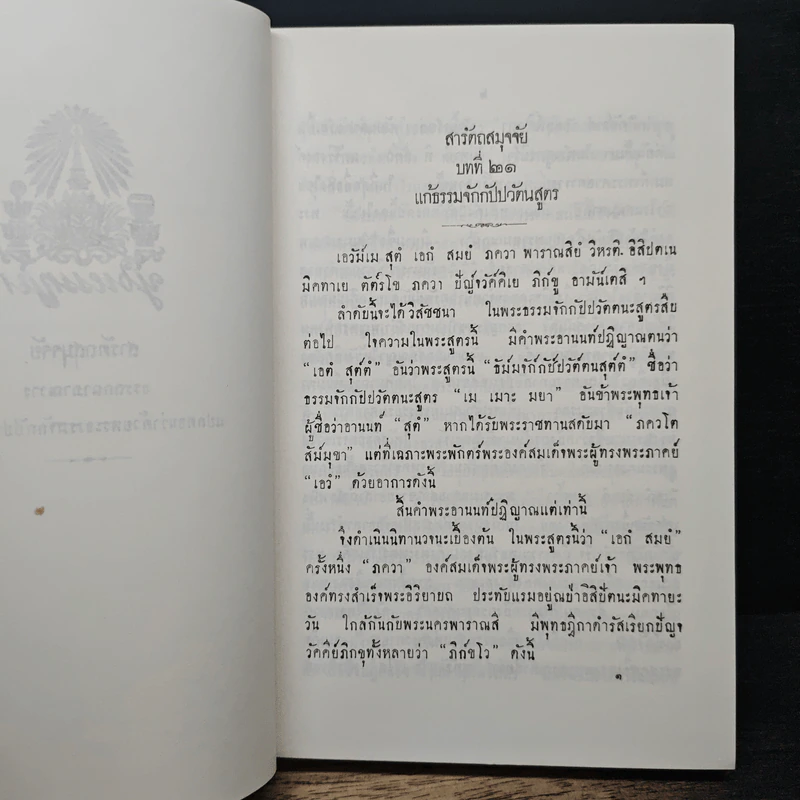 สารัตถสมุจจัย
บทที่ ๒๑
แก้ธรรมจักกัปปวัตนสูตร
เอวัม์เม สุตํ เอกํ สมยํ ภควา พาราณสิยํ วิหรติ. อิสิปตเน
มิคทาเย ตัต์รโข ภควา ปัญ์จวัค์คิเย ภิก์ขู อามัน์เตสิ ฯ
ลำดับนี้จะได้วิสัชชนา ในพระธรรมจักกัปปวัตตนะสูตรสืบ
ต่อไป ใจความในพระสูตรนี้ มีคำพระอานนท์ปฏิญาณตนว่า
“เอตํ สุต์ตํ” อันว่าพระสูตรนี้ “ธัม์มจัก์กัป์ปวัต์ตนสุต์ตํ” ชื่อว่า
ธรรมจักกัปปวัตตนะสูตร “เม เมาะ มยา” อันข้าพระพุทธเจ้า
ผู้ชื่อว่าอานนท์ “สุตํ” หากได้รับพระราชทานสดับมา “ภควโต
สัม์มุขา” แต่ที่เฉภาะพระพักตร์พระองค์สมเด็จพระผู้ทรงพระภาคย์
“เอวํ” ด้วยอาการดังนี้
สิ้นคำพระอานนท์ปฏิญาณแต่เท่านี้
จึ่งดำเนินนิทานวจนะเบื้องต้น ในพระสูตรนี้ว่า “เอกํ สมยํ”
ครั้งหนึ่ง “ภควา” องค์สมเด็จพระผู้ทรงพระภาคย์เจ้า พระพุทธ
องค์ทรงสำเร็จพระอิริยายถ ประทับแรมอยู่ณป่าอิสิปัตนะมิคทายะ
วัน ใกล้กันกับพระนครพาราณสี มีพุทธฎีกาดำรัสเรียกปัญจ
วัคคีย์ภิกขุทั้งหลายว่า “ภิก์ขโว” ดังนี้
๑
สารัตถสมุจจัย